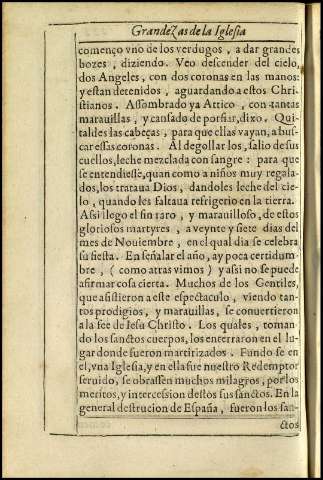 Grandezas de la Iglesia
començo vno de los verdugos, a dar grandes
bozes, diziendo. Veo descender del cielo,
dos Angeles, con dos coronas en las manos:
y estan detenidos, aguardando a estos Chri-
stianos. Assombrado ya Attico, con tantas
marauillas, y cansado de porfiar, dixo. Qui-
taldes las cabeças, para que ellas vayan, a bus-
car essas coronas. Al degollar los, salio de sus
cuellos, leche mezclada con sangre: para que
se entendiesse, quan como a niños muy regala-
dos, los trataua Dios, dandoles leche del cie-
lo, quando les faltaua refrigerio en la tierra.
Assi llego el fin raro, y marauilloso, de estos
gloriosos martyres, a veynte y siete dias del
mes de Nouiembre, en el qual dia se celebra
su fiesta. En señalar el año, ay poca certidum-
bre, (como atras vimos) y assi no se puede
afirmar cosa cierta. Muchos de los Gentiles,
que assistieron a este espectaculo, viendo tan-
tos prodigios, y marauillas, se conuertieron
a la fee de Iesu Christo. Los quales, toman-
do los sanctos cuerpos, los enterraron en el lu-
gar donde fueron martirizados. Fundo se en
el, vna Iglesia, y en ella fue nuestro Redemptor
seruido, se obrassen muchos milagros, por los
meritos, y intercession destos sus sanctos. En la
general destrucion de España, fueron los san-
ctos